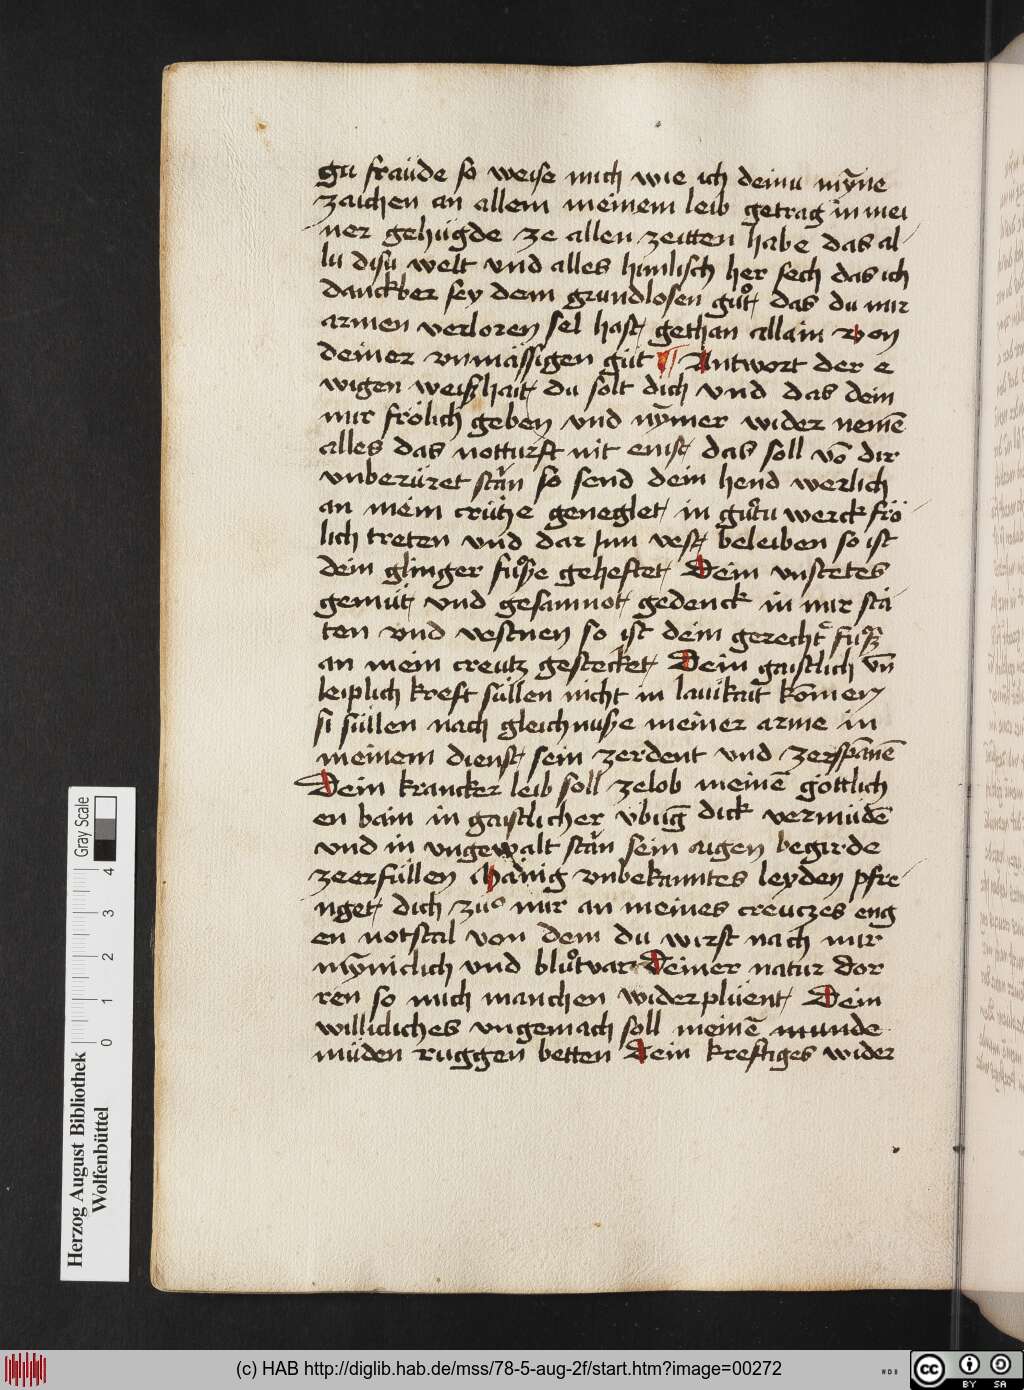 gu fraüde so weise mich wie ich deinu mȳne
zaichen an allem meinem leib getrag in mei
ner gehügde ze allen zeitten habe das al
lu disu welt vnd alles himlisch her sech das ich
danckber sey dem grundlosen guͦt das du mir
armen verloren sel hast gethan allain von
deiner vnmässigen güt ¶ Antwort der e
wigen weißhait du solt dich vnd das dein
mir frölich geben vnd nȳmer wider nemē
alles das notturft nit enist das soll vō dir
vnberüret stän so send dein hend werlich
an mein crütze geneglet in guͦtu werck frö
lich treten vnd dar Inn vest beleiben so ist
dein glinger fuͦße geheftet Dein vnstetes
gemüt vnd gesamnot gedenck in mir stä
ten vnd vestnen so ist dein gerechtͤ fuͦß
an mein creutz gestecket Dein gaistlich vn̄
leiplich kreft süllen nicht in lauikait kōmen
si süllen nach gleichnuße meiner arme in
meinem dienst sein zerdent vnd zerspānē
Dein krancker leib soll zelob meinē göttlich
en bain in gaistlicher vbūg dick vermüdē
vnd in vngewalt stän sein aigen begirde
zeerfüllen Mänig vnbekanntes leyden pfre
nget dich zuͦ mir an meines creuczes eng
en notstal von dem du wirst nach mir
mȳniclich vnd bluͦtvar Deiner natur dor
ren so mich manchen widerplüent Dein
willicliches vngemach soll meinē munde
müden ruggen betten Dein kreftiges wider
Herzog August Bibliothek
Wolfenbüttel
Gray Scale
0 1 2 3 4
(c) HAB http://diglib.hab.de/mss/78-5-aug-2f/start.htm?image=00272
WDB
cc BY SA